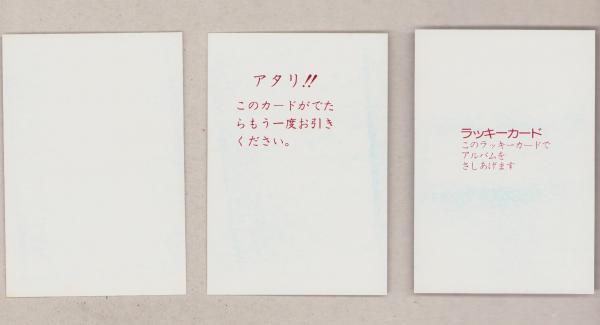 アタリ!!
このカードがでた
らもう一度お引き
ください。
ラッキーカード
このラッキーカードで
アルバムを
さしあげます